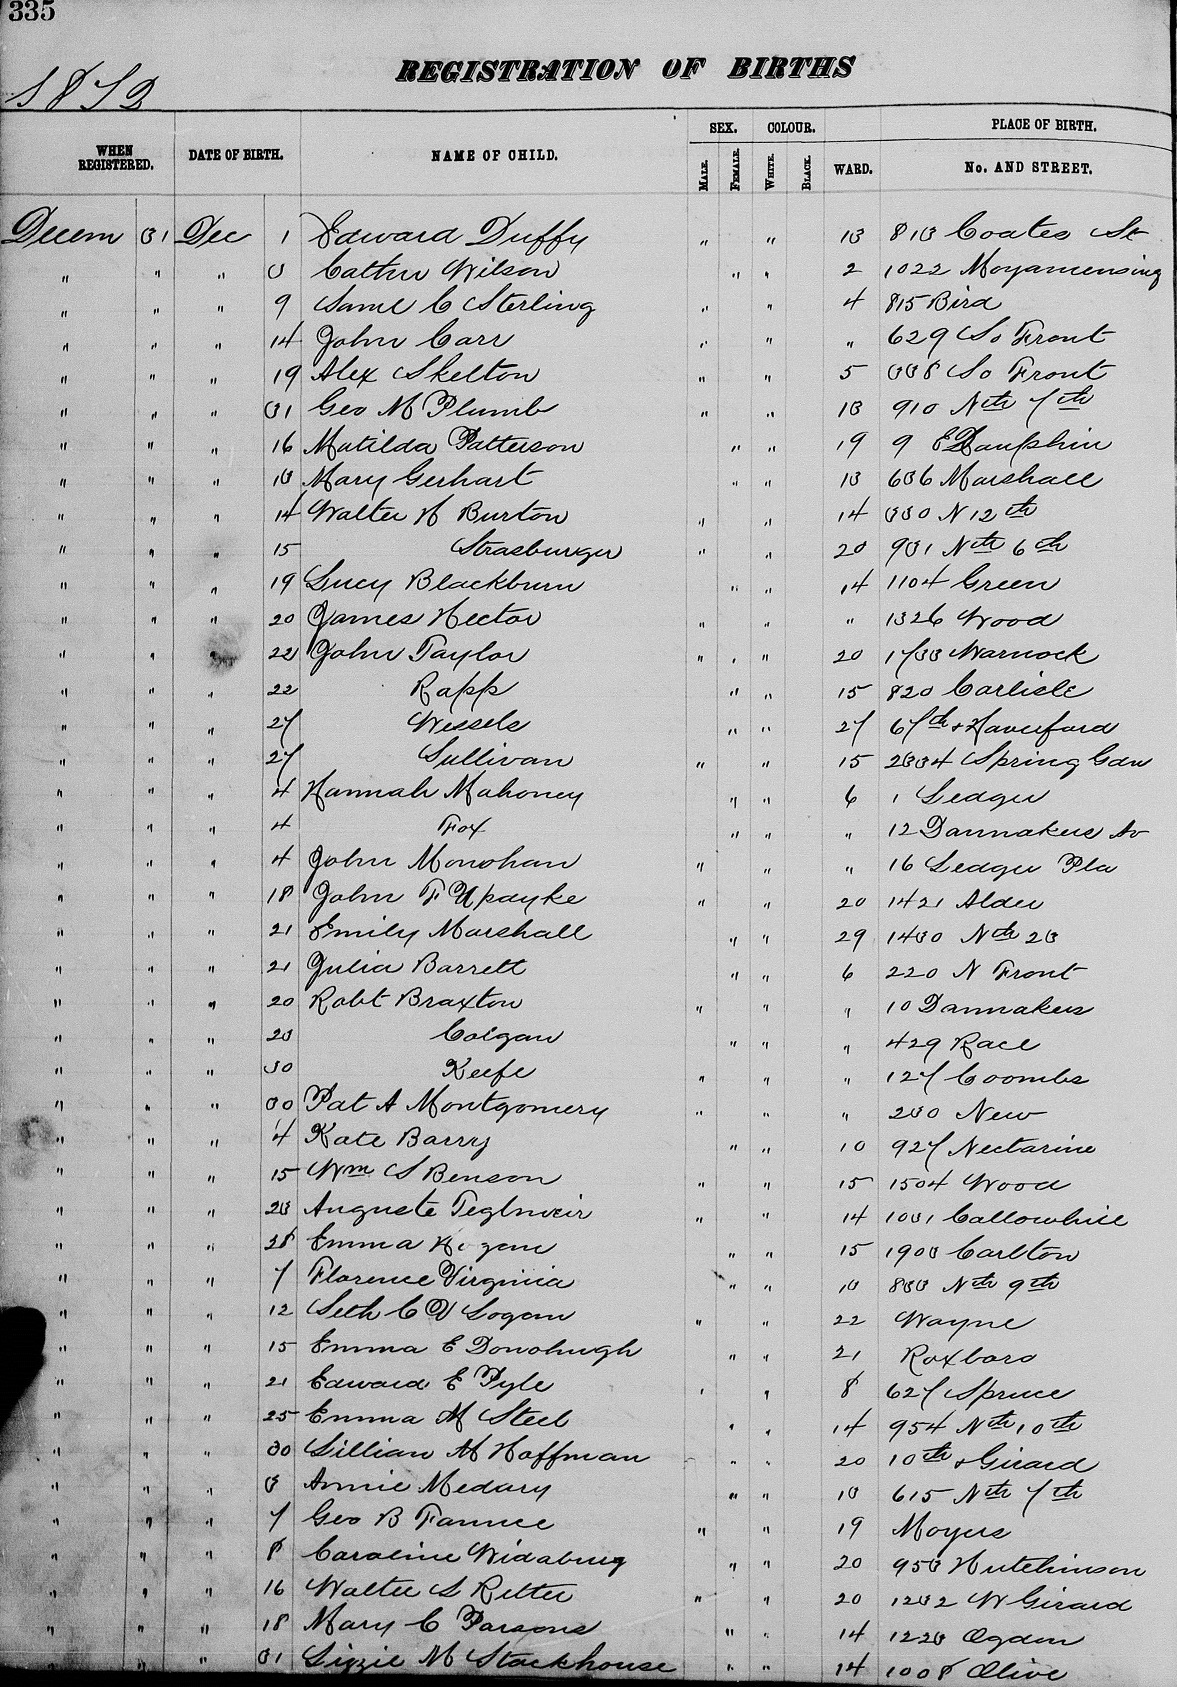 335
REGISTRATION OF BIRTHS
1873
SEX. COLOUR. PLACE OF BIRTH.
WHEN REGISTERED. DATE OF BIRTH. NAME OF CHILD. MALE. FEMALE. WHITE. BLACK. WARD. No. AND STREET.
Decem 31 Dec 1 Edward Duffy " " 13 813 Coates St
" " " 3 Cathn Wilson " " 2 1022 Moyamensing
" " " 9 Saml C Sterling " " 4 815 Bird
" " " 14 John Carr " " " 629 So Front
" " " 19 Alex Skelton " " 5 338 So Front
" " " 31 Geo M Plumb " " 13 910 Nth 7th
" " " 16 Matilda Patterson " " 19 9 E Dauphin
" " " 13 Mary Gerhart " " 13 636 Marshall
" " " 14 Walter H Burton " " 14 330 N 12th
" " " 15 Strasburger " " 20 931 Nth 6th
" " " 19 Lucy Blackburn " " 14 1104 Green
" " " 20 James Hector " " " 1326 Wood
" " " 22 John Taylor " " " 20 1733 Warnock
" " " 22 Rapp " " 15 820 Carlisle
" " " 27 Wessels " " 27 67th & Haverford
" " " 27 Sullivan " " 15 2334 Spring Gdn
" " " 4 Hannah Mahoney " " 6 1 Ledger
" " " 4 Fox " " " 12 Dannakers Av
" " " 4 John Monohan " " " 16 Ledger Pla
" " " 18 John F Updyke " " 20 1421 Alder
" " " 21 Emily Marshall " " 29 1430 Nth 23
" " " 21 Julia Barrett " " 6 220 N Front
" " " 20 Robt Braxton " " " 10 Dannakers
" " " 23 Colgan " " " 429 Race
" " " 30 Keefe " " " 127 Coombs
" " " 30 Pat A Montgomery " " " 230 New
" " " 4 Kate Barry " " 10 927 Nectarine
" " " 15 Wm S Benson " " 15 1504 Wood
" " " 23 Auguste " " 14 1031 Callowhill
" " " 28 Emma " " 15 1903 Carlton
" " " 7 Florence Virginia " " 13 833 Nth 9th
" " " 12 Seth C V Logan " " 22 Wayne
" " " 15 Emma E Donohugh " " 21 Roxboro
" " " 21 Edward E Pyle " " 8 627 Spruce
" " " 25 Emma M Steel " " 14 954 Nth 10th
" " " 30 Lillian M Hoffman " " 20 10th & Girard
" " " 3 Annie Medary " " 13 615 Nth 7th
" " " 7 Geo B Fannce " " 19 Moyers
" " " 8 Caroline Widaburg " " 20 953 Hutchinson
" " " 16 Walter S Ritter " " 20 1232 W Girard
" " " 18 Mary C Parsons " " 14 1223 Ogden
" " " 31 Lizzie M Stackhouse " " 14 1008 Olive